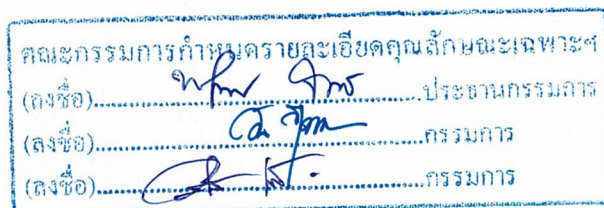 คณะกรรมการกำหนดรายละเอียดคุณลักษณะเฉพาะฯ
(ลงชื่อ)..........................................ประธานกรรมการ
(ลงชื่อ)..........................................กรรมการ
(ลงชื่อ)..........................................กรรมการ